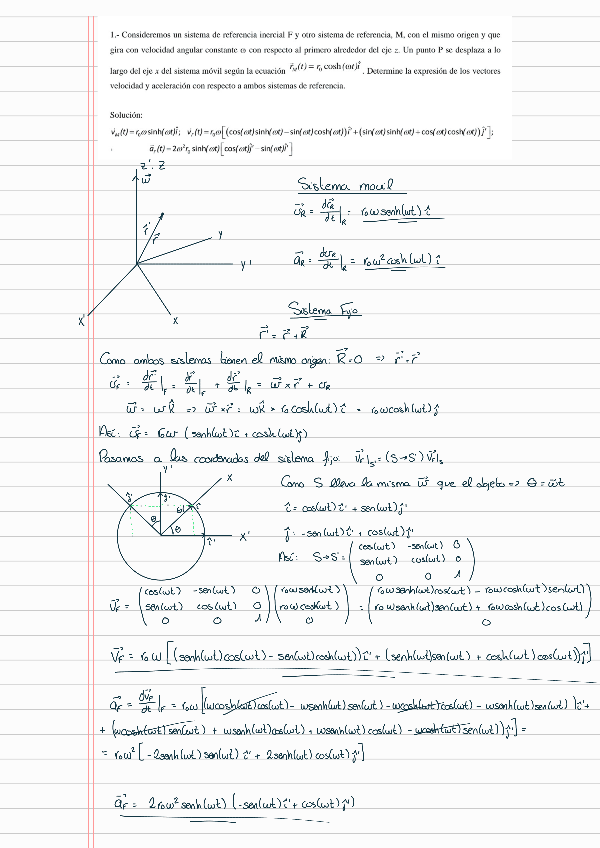 1.- Consideremos un sistema de referencia inercial F y otro sistema de referencia, M, con el mismo origen y que
gira con velocidad angular constante ω con respecto al primero alrededor del eje z. Un punto P se desplaza a lo
largo del eje x del sistema móvil según la ecuación r⃗_M(t) = r₀ cosh(ωt)î . Determine la expresión de los vectores
velocidad y aceleración con respecto a ambos sistemas de referencia.
Solución:
v⃗_M(t) = r₀ω sinh(ωt)î; v⃗_F(t) = r₀ω[(cos(ωt)sinh(ωt) − sin(ωt)cosh(ωt))î' + (sin(ωt)sinh(ωt) + cos(ωt)cosh(ωt))ĵ'];
a⃗_F(t) = 2ω²r₀ sinh(ωt)[cos(ωt)ĵ' − sin(ωt)î']
z' ≡ z
w⃗
r⃗' r⃗
y
y'
x'
x
Sistema movil
v⃗_R = dr⃗_R/dt |_R = r₀ w senh(wt) î
a⃗_R = dv_R/dt |_R = r₀ w² cosh(wt) î
Sistema Fijo
r⃗' = r⃗ + R⃗
Como ambos sistemas tienen el mismo origen: R⃗ = 0 ⇒ r⃗' = r⃗
v⃗_F = dr⃗'/dt |_F = dr⃗/dt |_F + dr⃗/dt |_R = w⃗ × r⃗ + v_R
w⃗ = w k̂ ⇒ w⃗ × r⃗ = w k̂ × r₀ cosh(wt) î = r₀ w cosh(wt) ĵ
Así: v⃗_F = r₀ w (senh(wt) î + cosh(wt) ĵ)
Pasamos a las coordenadas del sistema fijo: V⃗_F|_S' = (S→S') V⃗_F|_S
y'
x
x'
ĵ ĵ' î î' θ θ
Como S lleva la misma w⃗ que el objeto ⇒ θ = wt
î = cos(wt) î' + sen(wt) ĵ'
ĵ = -sen(wt) î' + cos(wt) ĵ'
Así: S→S' = (cos(wt) -sen(wt) 0
sen(wt) cos(wt) 0
0 0 1)
V⃗_F = (cos(wt) -sen(wt) 0) (r₀ w senh(wt)) = (r₀ w senh(wt)cos(wt) - r₀ w cosh(wt)sen(wt))
(sen(wt) cos(wt) 0) (r₀ w cosh(wt)) (r₀ w senh(wt)sen(wt) + r₀ w cosh(wt)cos(wt))
(0 0 1) (0) (0)
V⃗_F = r₀ w [(senh(wt)cos(wt) - sen(wt)cosh(wt)) î' + (senh(wt)sen(wt) + cosh(wt)cos(wt)) ĵ']
a⃗_F = dV⃗_F/dt |_F = r₀ w [(w cosh(wt)cos(wt) - w senh(wt)sen(wt) - w cosh(wt)cos(wt) - w senh(wt)sen(wt)) î' +
+ (w cosh(wt)sen(wt) + w senh(wt)cos(wt) + w senh(wt)cos(wt) - w cosh(wt)sen(wt)) ĵ'] =
= r₀ w² [-2 senh(wt) sen(wt) î' + 2 senh(wt) cos(wt) ĵ']
a⃗_F = 2 r₀ w² senh(wt) (-sen(wt) î' + cos(wt) ĵ')